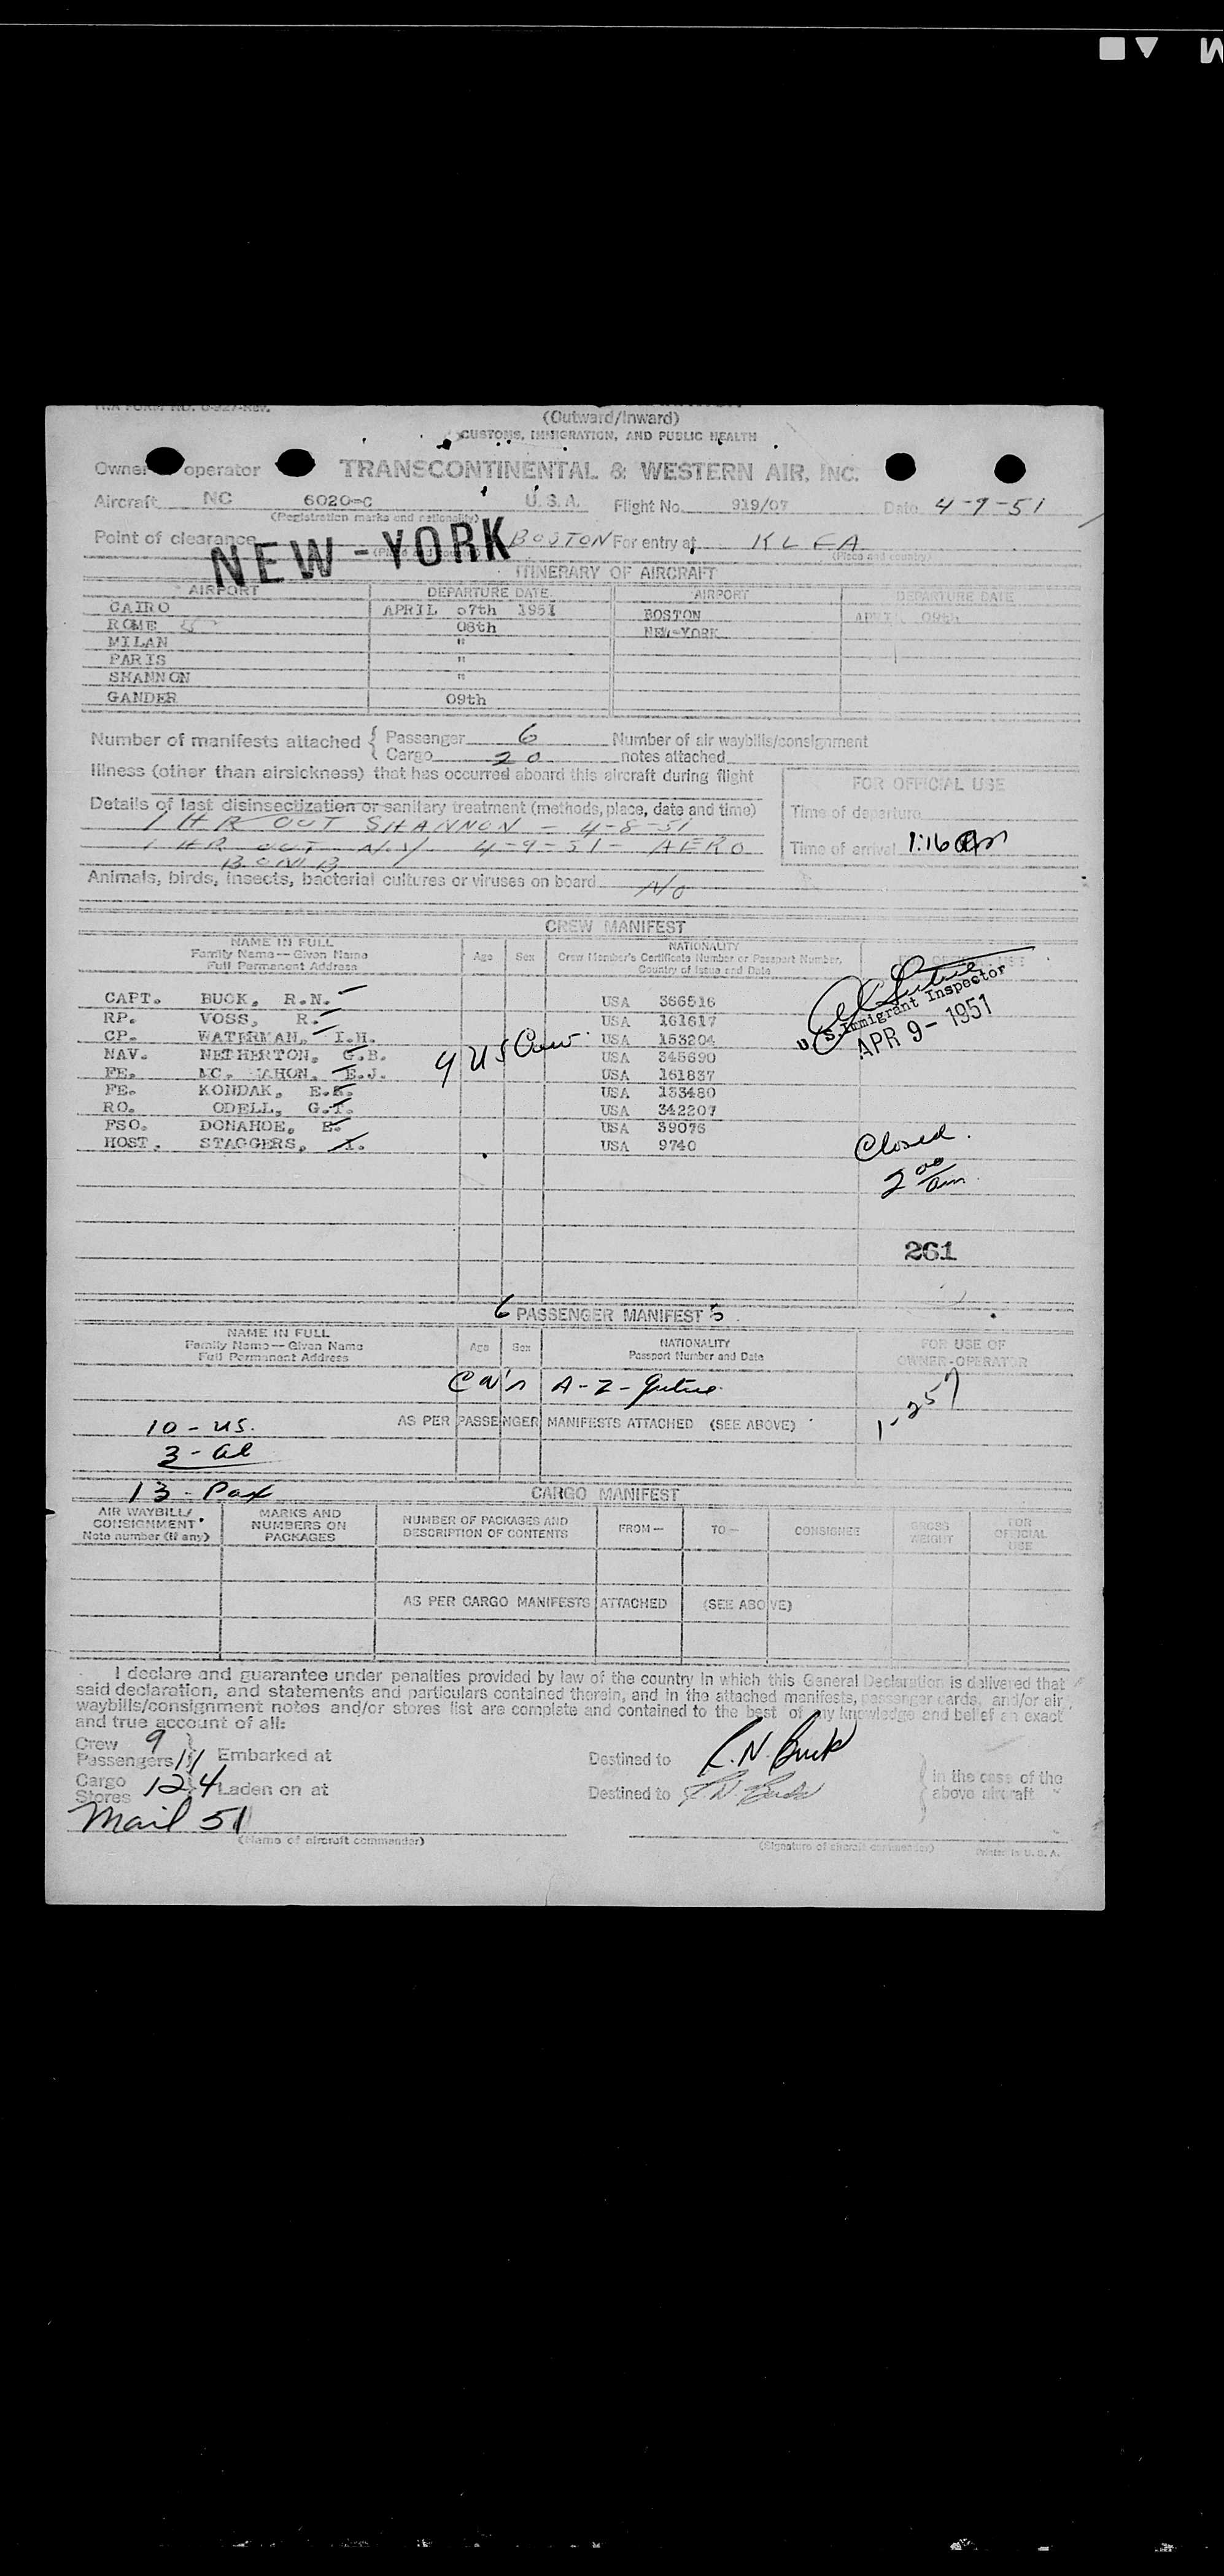 TWA FORM NO.
(Outward/Inward)
CUSTOMS, IMMIGRATION, AND PUBLIC HEALTH
Owner operator TRANSCONTINENTAL & WESTERN AIR, INC.
Aircraft NC 6020-C U.S.A. Flight No. 919/07 Date 4-9-51
(Registration marks and nationality)
Point of clearance NEW-YORK BOSTON For entry at
(Place and country)
ITINERARY OF AIRCRAFT
AIRPORT DEPARTURE DATE AIRPORT DEPARTURE DATE
CAIRO APRIL 07th 1951 BOSTON 09th
ROME 08th NEW-YORK
MILAN "
PARIS "
SHANNON "
GANDER 09th
Number of manifests attached { Passenger 6 Number of air waybills/consignment
Cargo 20 notes attached
Illness (other than airsickness) that has occurred aboard this aircraft during flight
FOR OFFICIAL USE
Details of last disinsectization or sanitary treatment (methods, place, date and time)
Time of departure
1 HR OUT SHANNON - 4-8-51
1 HR OUT N.Y 4-9-51- AERO
BOMB
Time of arrival 1:16 am
Animals, birds, insects, bacterial cultures or viruses on board No
CREW MANIFEST
NAME IN FULL
Family Name—Given Name
Full Permanent Address
Age Sex
NATIONALITY
Crew Member's Certificate Number or Passport Number,
Country of Issue and Date
U.S. Immigrant Inspector
APR 9- 1951
CAPT. BUCK, R.N. USA 366516
RP. VOSS, R. USA 161617
CP. WATERMAN, I.H. USA 153204
NAV. NETHERTON, G.B. USA 345690
9 US Crew
FE. MC. MAHON, E.J. USA 161837
FE. KONDAK, E. USA 133480
RO. ODELL, G.T. USA 342207
FSO. DONAHOE, E. USA 39076
HOST. STAGGERS, USA 9740
Closed
2 00 am
261
6 PASSENGER MANIFEST 5
NAME IN FULL
Family Name—Given Name
Full Permanent Address
Age Sex
NATIONALITY
Passport Number and Date
FOR USE OF
OWNER-OPERATOR
A-2-
1-257
10 - US.
AS PER PASSENGER MANIFESTS ATTACHED (SEE ABOVE)
3 - al
13 - Pax
CARGO MANIFEST
AIR WAYBILL/
CONSIGNMENT
Note number (if any)
MARKS AND
NUMBERS ON
PACKAGES
NUMBER OF PACKAGES AND
DESCRIPTION OF CONTENTS
FROM—
TO—
CONSIGNEE
GROSS
WEIGHT
FOR
OFFICIAL
USE
AS PER CARGO MANIFESTS ATTACHED (SEE ABOVE)
I declare and guarantee under penalties provided by law of the country in which this General Declaration is delivered that
said declaration, and statements and particulars contained therein, and in the attached manifests, passenger cards, and/or air
waybills/consignment notes and/or stores list are complete and contained to the best of my knowledge and belief an exact
and true account of all:
Crew 9
Passengers 11 Embarked at Destined to R.N. Buck
Cargo 124 Laden on at Destined to R.N. Buck
Stores
in the case of the
above aircraft
Mail 51
(Name of aircraft commander)
(Signature of aircraft commander)
Printed in U. S. A.